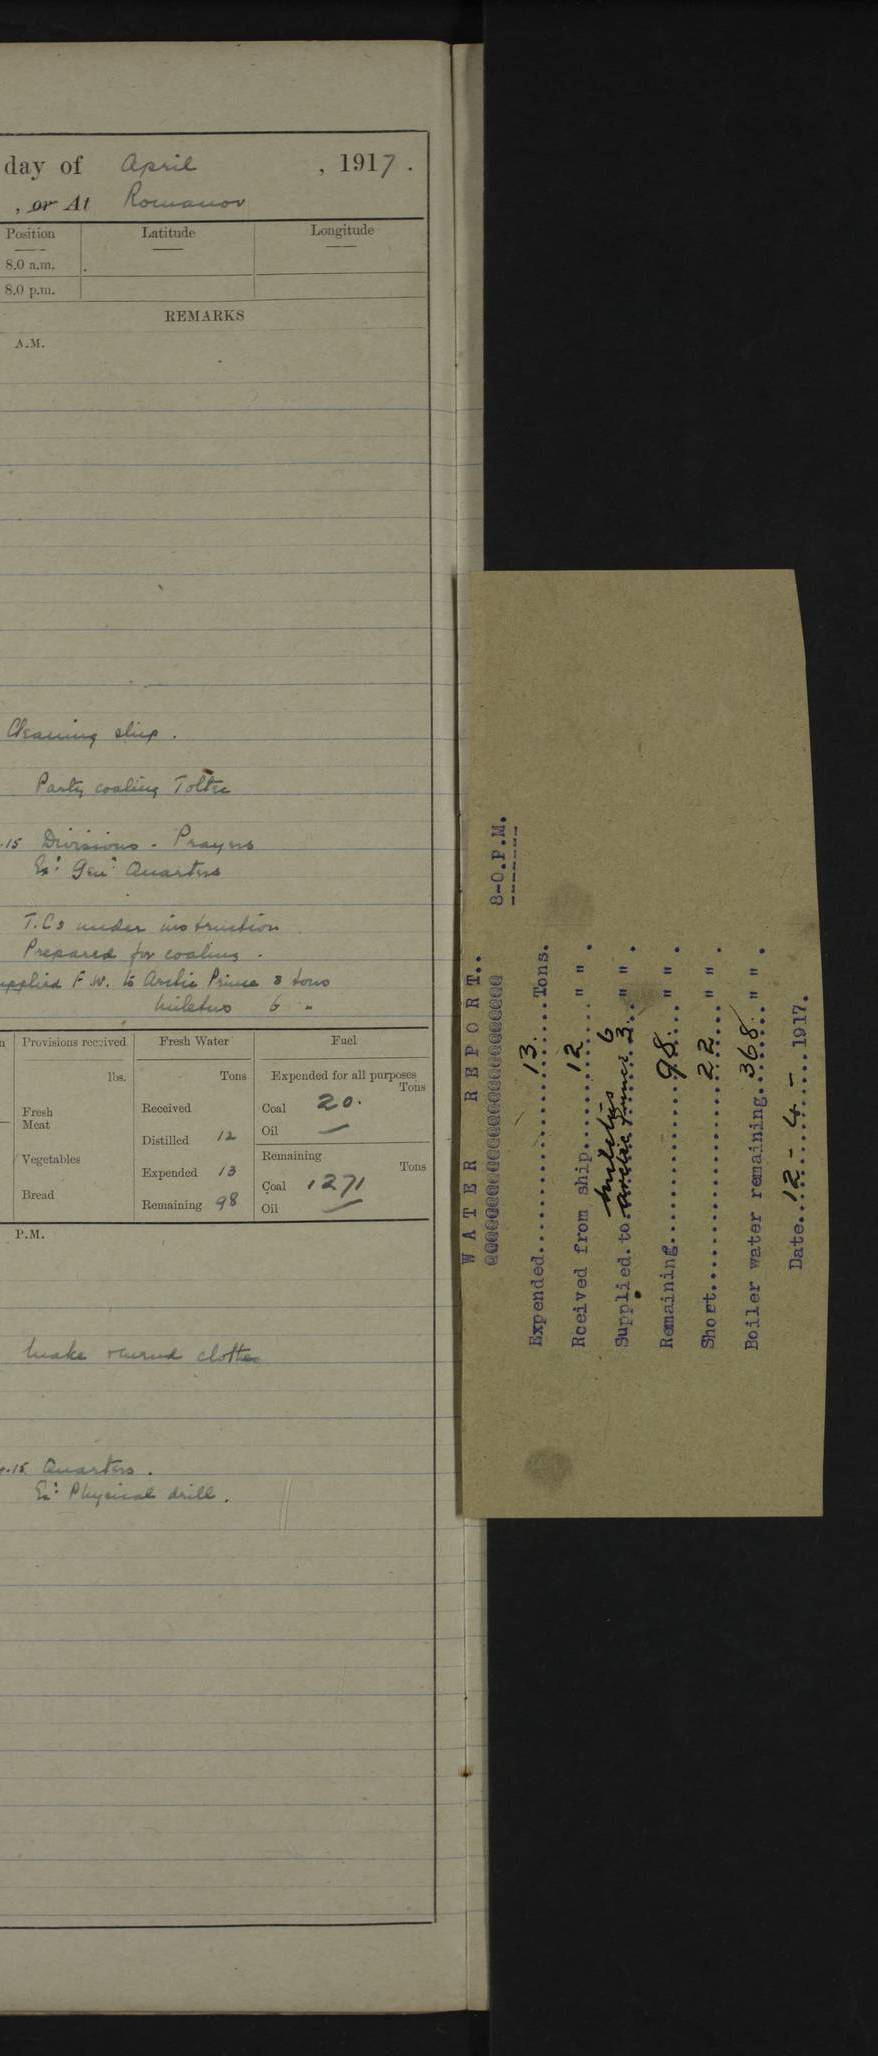 day of April , 1917.
, or At Romanov
Position Latitude Longitude
8.0 a.m.
8.0 p.m.
REMARKS
A.M.
Cleaning ship.
Party coaling Toltec
.15 Divisions - Prayers
Ex: Gen: Quarters
T.Cs under instruction
Prepared for coaling.
upplied F.W. to Arctic Prince 3 tons
Miletus 6 "
n Provisions received Fresh Water Fuel
lbs. Tons Expended for all purposes
Tons
Fresh Meat Received Coal 20.
Distilled 12 Oil —
Vegetables Remaining
Expended 13 Tons
Bread Coal 1271
Remaining 98 Oil —
P.M.
Make & mend clothes
.15 Quarters.
Ex: Physical drill.
WATER REPORT..
@@@@@@@@@@@@@@@@@@@@@@@@
8-0.P.M.
-------
Expended..........13....Tons.
Rceived from ship......12...." " .
Miletus 6
Supplied.to.Arctic Prince 3..." " .
Remaining...........98...." " .
Short...........22...." " .
Boiler water remaining..368..." " .
Date...12-4-....1917.